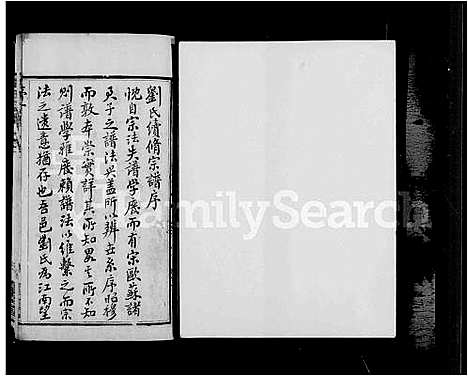 劉氏續脩宗譜序
慨自宗法失譜學廢而有宋歐蘇諸
君子之譜法興蓋所以辨世系序昭穆
而敦本崇實詳其所知畧其所不知
則譜學雖廢賴譜法以維繫之而宗
法之遺意猶存也吾邑劉氏為江南望
FamilySearch